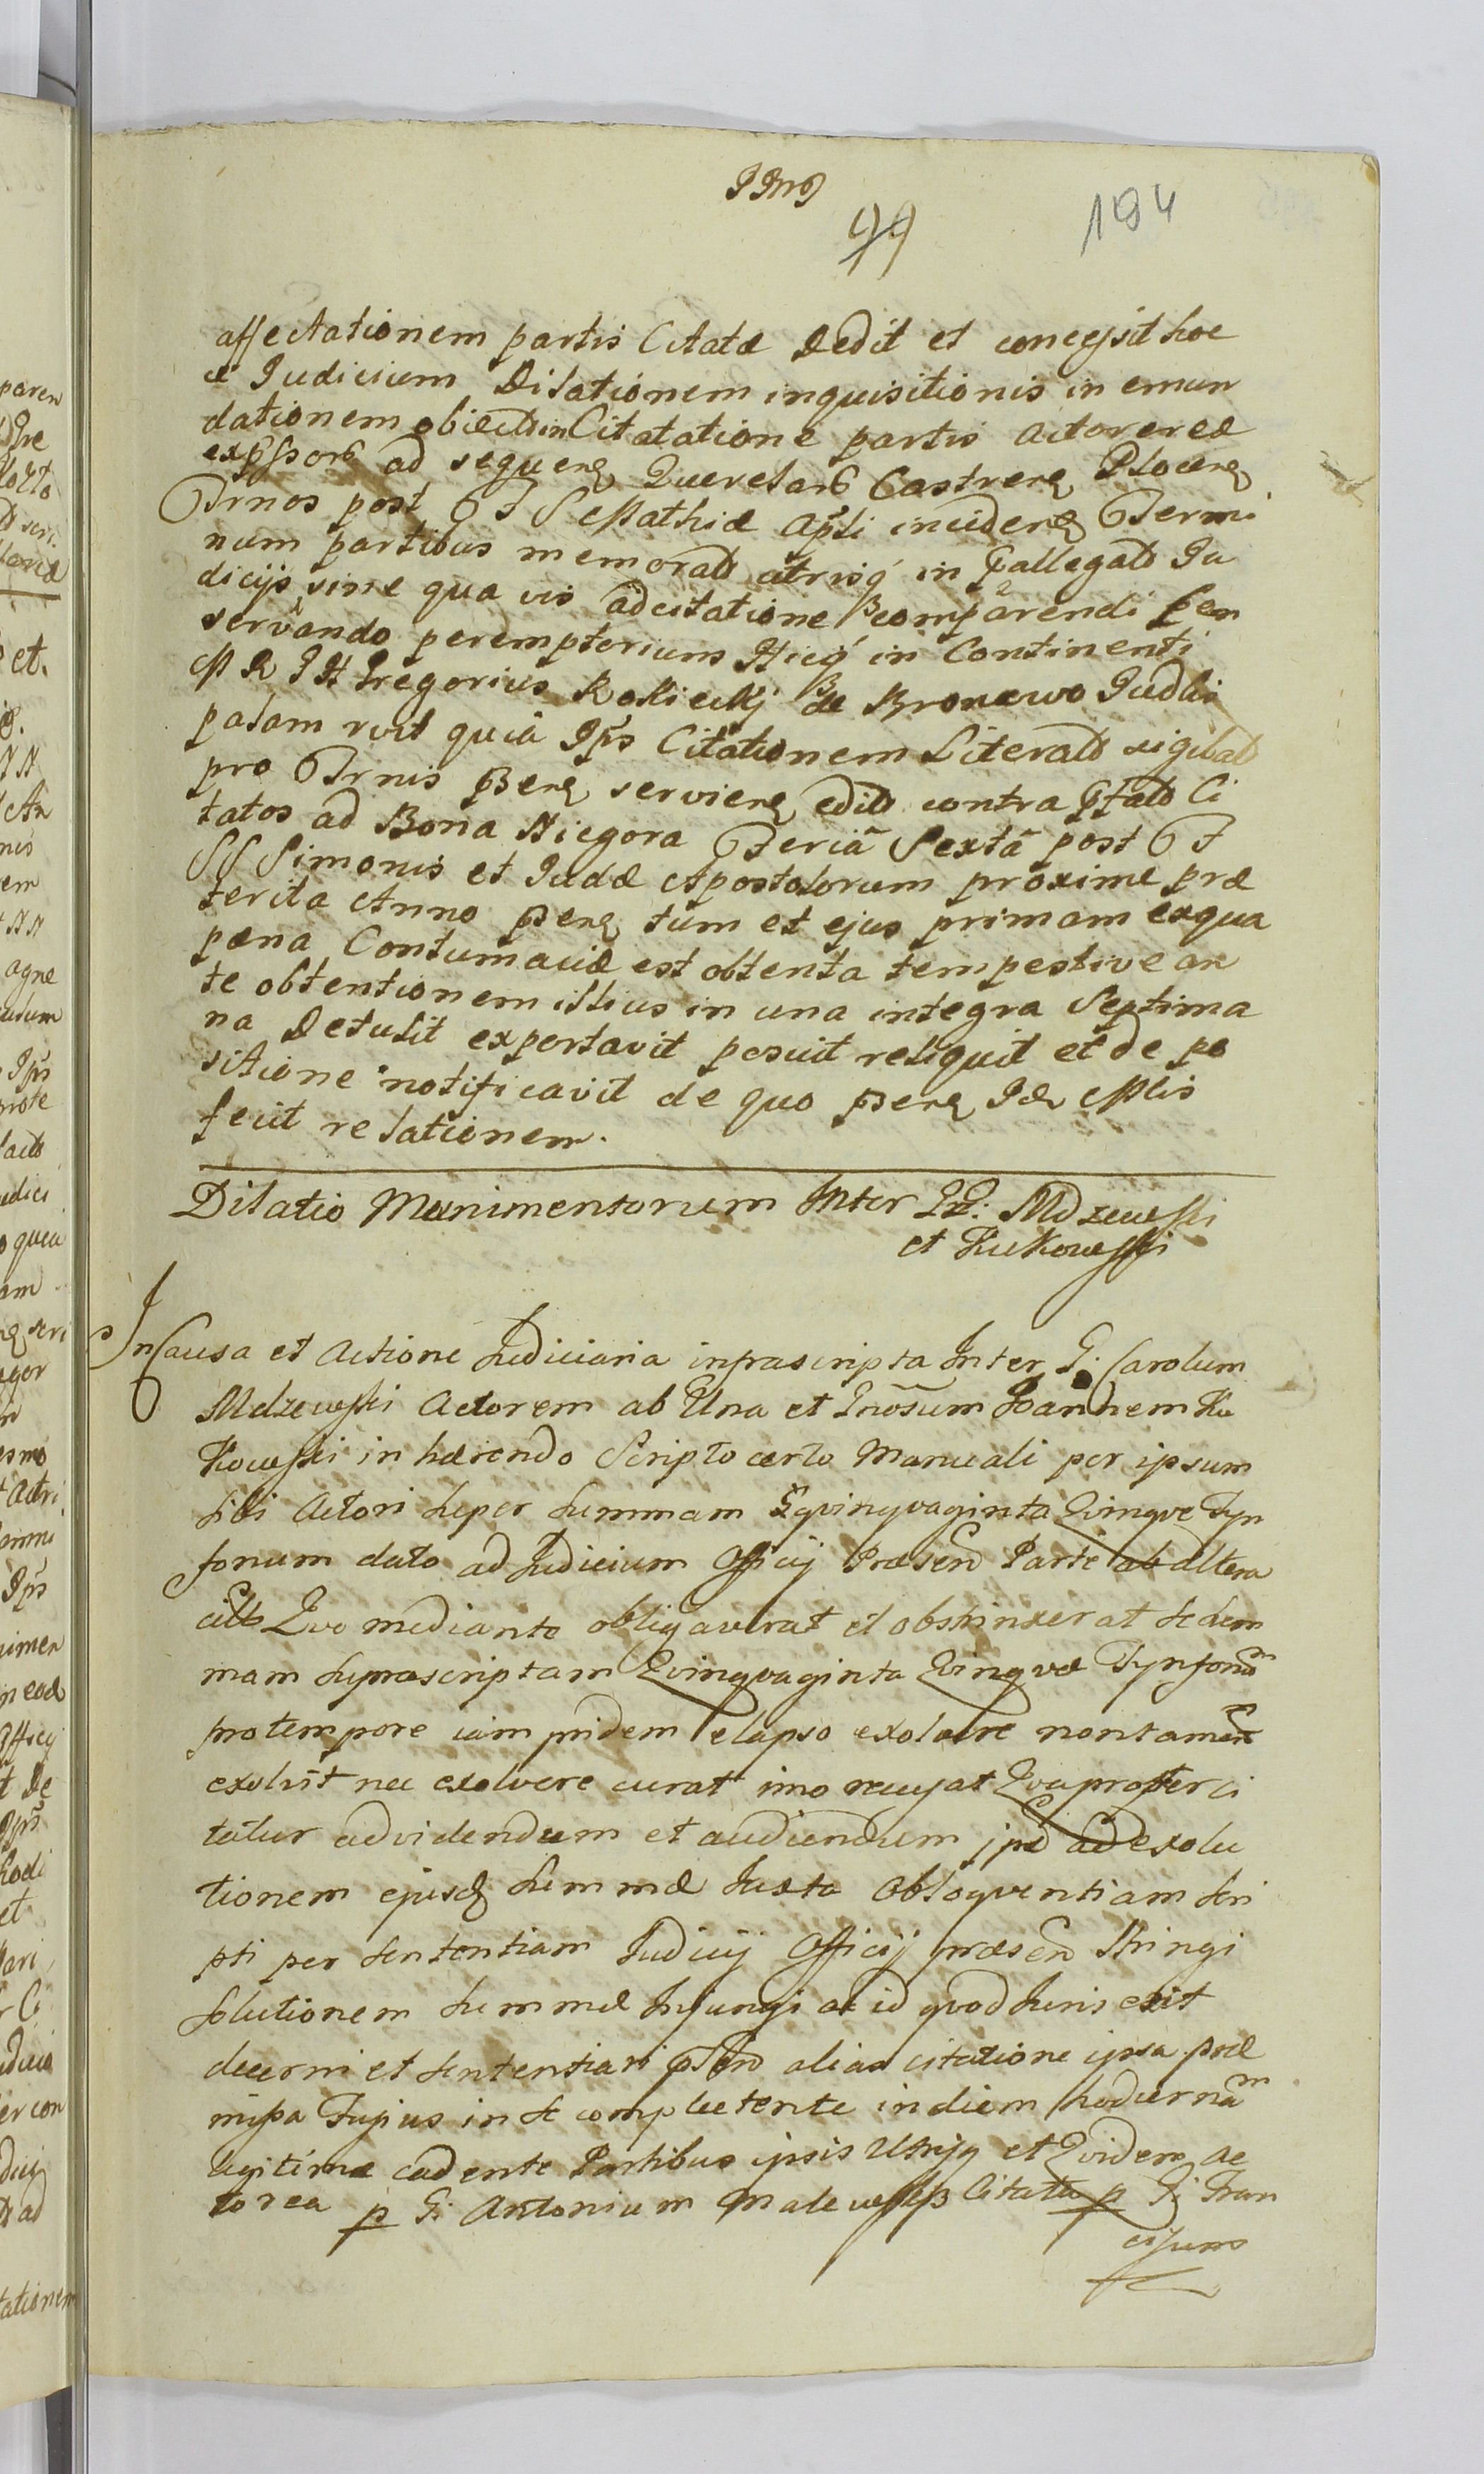 194
affectationem partis Citatæ dedit et concessit hoc
ce Judicium Dilationem inquisitionis in emun
dationem obiector in Citatatione partis actoreæ
ad sequen Querelar Castren Plocen
Trnos post F S Mathiæ Apli inciden Termi
num partibus memorat utrisq in allegat Ju
dicijs sine qua vis adcitatione comparendi
servando peremptorium Hicq in Continenti
M R J H Gregorius Rokicki de Bronowo Judlis
palam rvit quia Jps Citationem Literat sigilat
pro Trnis servien edit contra Ci
tatos ad Bona Niegora Feriā Sextā post F
SS Simonis et Judæ Apostolorum proxime præ
terita Anno tum et ejus primam ex qua
pæna Contumaciæ est obtenta tempestive an
te obtentionem illius in una integra Septima
na Detulit exportavit posuit reliquit et de po
sitione notificavit de quo Mlis
fecit relationem.
Dilatio Munimentorum Inter Mdzewski
et Kukowski
In Causa et Actione Judiciaria infrascripta Inter G. Carolum
Mdzewski Actorem ab Una et Gnōsum Joannem Ku
kowski in hærendo Scripto certo Manuali per ipsum
sibi Actori super summam qvinqvaginta Qvinqve Tyn
fonum dato ad Judicium Officij Præsen Parte ab altera
citt Qvo mediante obligaverat et obstrinxerat se sum
mam suprascriptam Qvinqvaginta Qvinqve Tynfonum
pro tempore iam pridem elapso exolvere non tamen
exolvit nec exolvere curat imo recusat Qvapropter ci
tatur ad videndum et audiendum ipse ad exolu
tionem ejusd summæ Juxta obloqventiam scri
pti per sententiam Judicij Officij præsen stringi
solutionem summæ Injungi ac id qvod Juris erit
decerni et sententiari alias citatione ipsa præ
missa fusius in se complectente in diem hodiernam
legitime cadente Partibus ipsis Utrisq et Qvidem ac
torea p G. Antonium Citata p G. Fran
ciscum